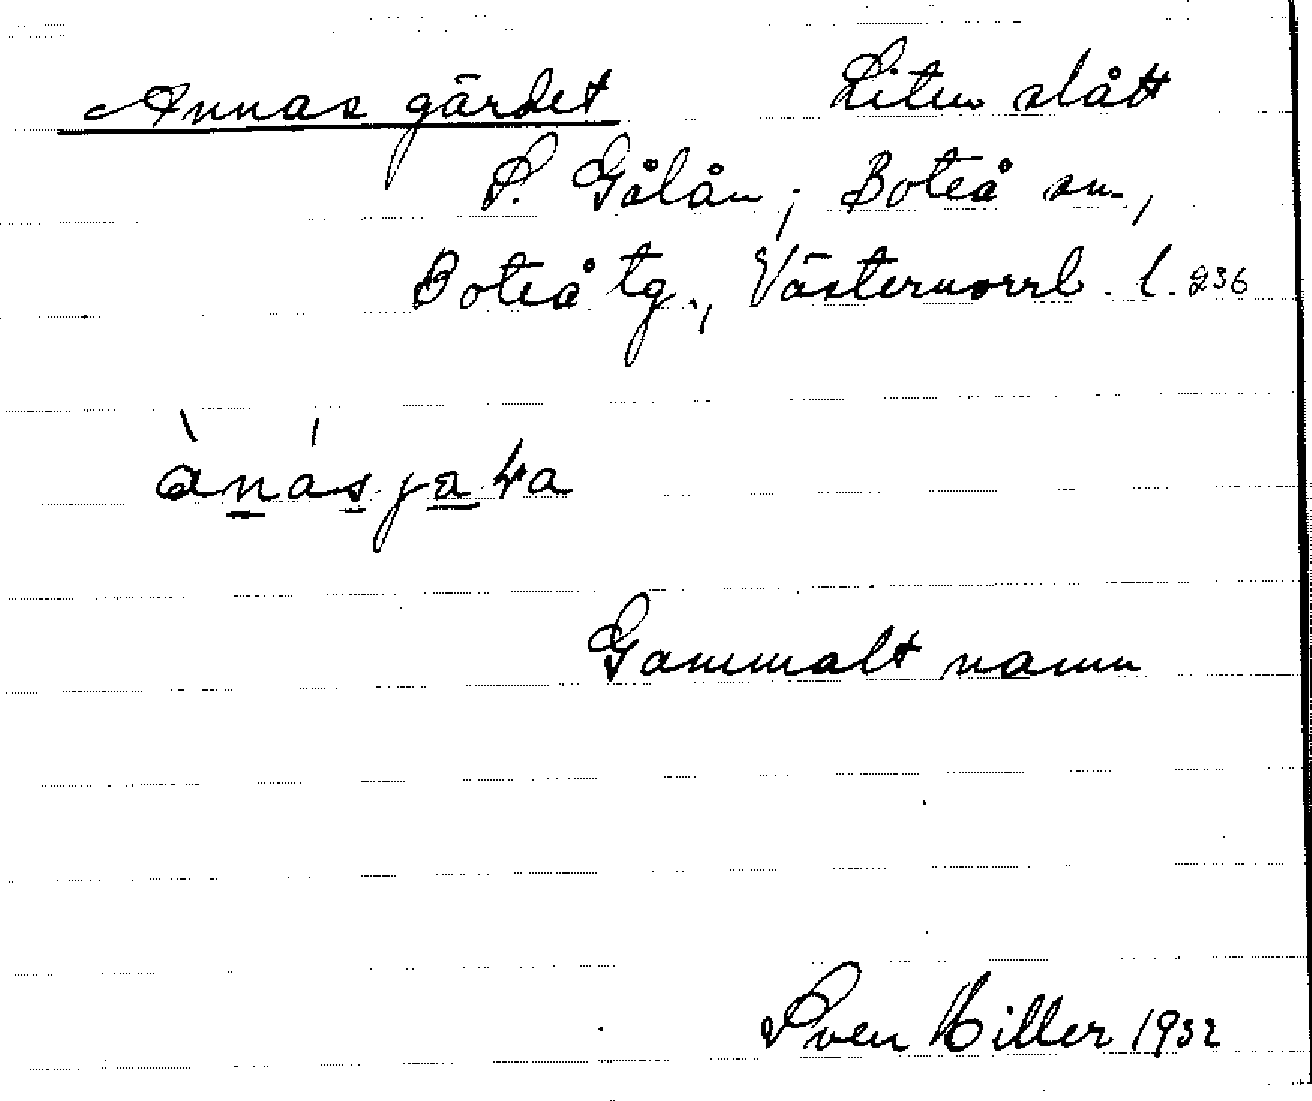 Annas gärdet Liten slått
S. Gålån, Boteå sn.,
Boteå tg., Västernorrl. l. 236
Gammalt namn
Sven Hiller 1932